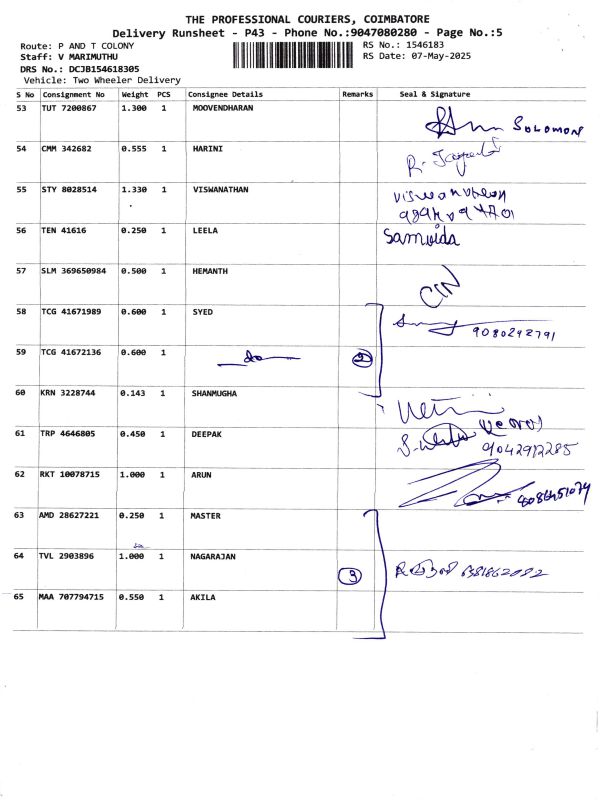 THE PROFESSIONAL COURIERS, COIMBATORE
Delivery Runsheet - P43 - Phone No.:9047080280 - Page No.:5
Route: P AND T COLONY
Staff: V MARIMUTHU
DRS No.: DCJB154618305
Vehicle: Two Wheeler Delivery
RS No.: 1546183
RS Date: 07-May-2025
S No Consignment No Weight PCS Consignee Details Remarks Seal & Signature
53 TUT 7200867 1.300 1 MOOVENDHARAN SOLOMON
54 CMM 342682 0.555 1 HARINI
55 STY 8028514 1.330 1 VISWANATHAN
56 TEN 41616 0.250 1 LEELA Samvida
57 SLM 369650984 0.500 1 HEMANTH
58 TCG 41671989 0.600 1 SYED 9080292791
59 TCG 41672136 0.600 1 do 2
60 KRN 3228744 0.143 1 SHANMUGHA
61 TRP 4646805 0.450 1 DEEPAK 9042912285
62 RKT 10078715 1.000 1 ARUN
63 AMD 28627221 0.250 1 MASTER
64 TVL 2903896 1.000 1 NAGARAJAN 3
65 MAA 707794715 0.550 1 AKILA